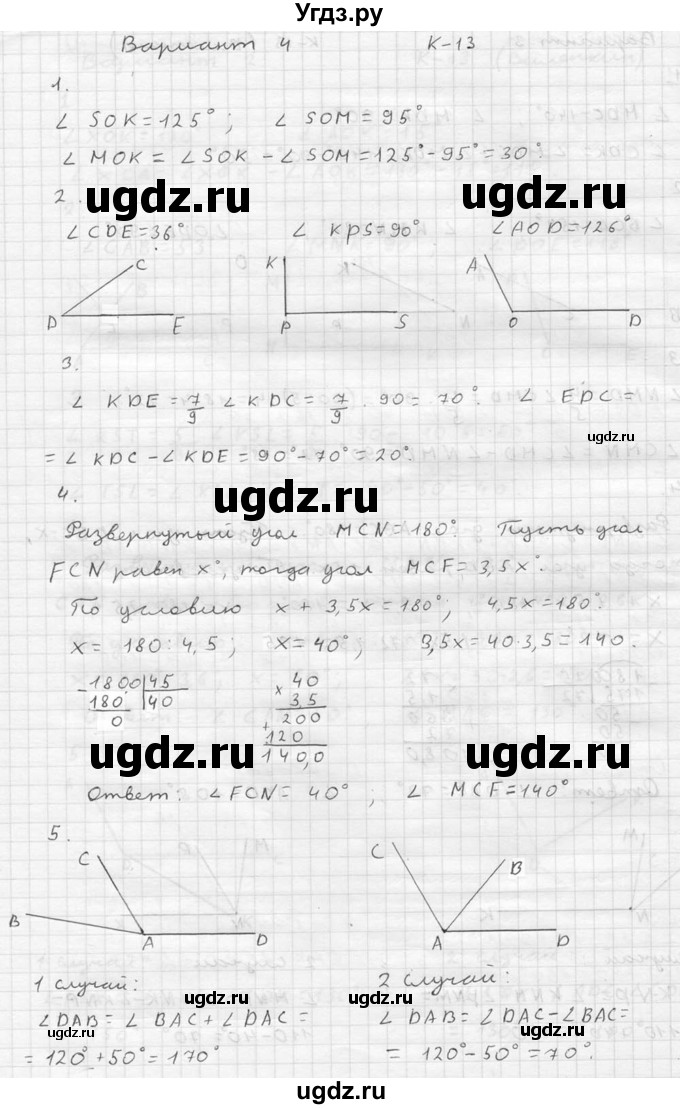 Угдз.ру
Вариант 4 К-13
1.
∠ SOK = 125° ; ∠ SOM = 95°
∠ MOK = ∠ SOK - ∠ SOM = 125° - 95° = 30°.
2.
ugdz.ru ugdz.ru
∠ CDE = 36° ∠ KPS = 90° ∠ AOD = 126°
C K A
D E P S O D
3.
∠ KDE = 7/9 ∠ KDC = 7/9 · 90 = 70°. ∠ EDC =
ugdz.ru
= ∠ KDC - ∠ KDE = 90° - 70° = 20°.
4.
ugdz.ru
Развернутый угол MCN = 180°. Пусть угол
FCN равен x°, тогда угол MCF = 3,5x°.
По условию x + 3,5x = 180°; 4,5x = 180°.
x = 180 : 4,5 ; x = 40° ; 3,5x = 40 · 3,5 = 140.
- 1800 45 40
180 40 × 3,5
0 200
+ 120
140,0
ugdz.ru ugdz.ru
Ответ: ∠ FCN = 40° ; ∠ MCF = 140°
5.
C C B
B A D A D
1 случай: 2 случай:
ugdz.ru ugdz.ru
∠ DAB = ∠ BAC + ∠ DAC = ∠ DAB = ∠ DAC - ∠ BAC =
= 120° + 50° = 170° = 120° - 50° = 70°.
ugdz.ru ugdz.ru
ugdz.ru